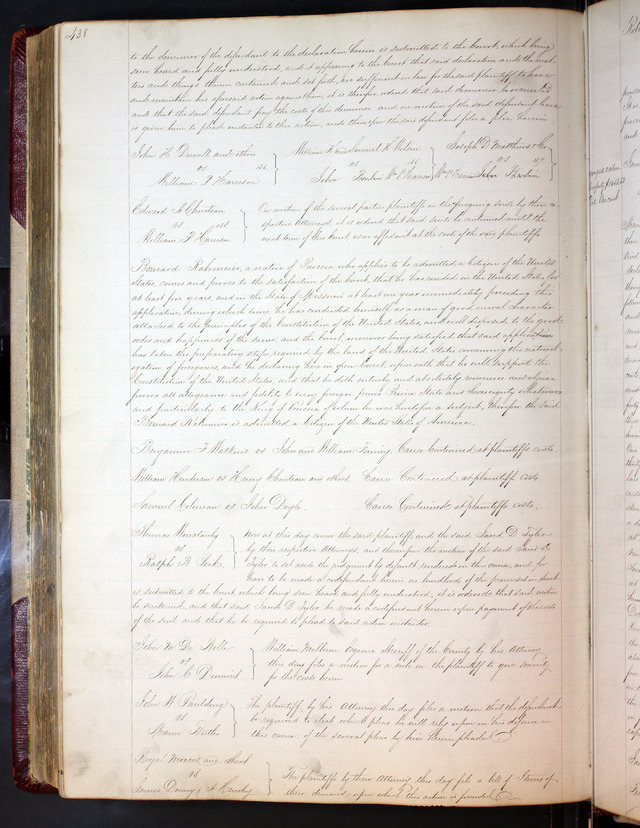 438
to the demurrer of the defendant to the declaration herein is submitted to the Court, which being
seen heard and fully understood, and it appearing to the Court that said declaration and the mat-
ters and things therein contained and set forth, are sufficient in law for the said plaintiff to have
and maintain his aforesaid action against him, it is therefore ordered that said demurrer be overruled
and that the said defendant pay the costs of this demurrer and on motion of the said defendant leave
is given him to plead instanter to this action, and thereupon the said defendant files a plea herein
John H Duvall and others
vs
William F Harrison
William H and Samuel H
vs
John Wm P Harrison
Joseph D Matthews & Co
vs
John
Edward A Chouteau
vs
William F Harrison
On motion of the several parties plaintiffs in the foregoing suits by their re-
spective Attorneys, it is ordered that said suits be continued until the
next term of this Court, as on affidavit at the costs of the said plaintiffs
Bernard Rahmeier, a native of Prussia who applies to be admitted a Citizen of the United
States, comes and proves to the satisfaction of the Court, that he has resided in the United States, for
at least five years, and in the State of Missouri at least one year immediately preceding this
application, during which time he has conducted himself as a man of good moral character
attached to the principles of the Constitution of the United States, and well disposed to the good
order and happiness of the same, and the Court, moreover being satisfied that said applicant
has taken the preparatory steps required by the laws of the United States concerning the natural-
ization of foreigners, and he declaring here in open Court, upon oath that he will support the
Constitution of the United States, and that he doth entirely and absolutely renounce and abjure
forever all allegiance and fidelity to every foreign power Prince State and Sovereignty whatsoever
and particularly to the King of Prussia of whom he was heretofore a Subject, Therefore the said
Bernard Rahmeier is admitted a Citizen of the United States of America.
Benjamin F Watkins vs John and William Finney Cause Continued at plaintiffs costs
William Henderson vs Henry Chouteau and others Cause Continued at plaintiffs costs
Samuel Coleman vs John Doyle. Cause Continued at plaintiffs costs.
Thomas
vs
Ralph
Now at this day comes the said plaintiff, and the said Jared D Tyler
by their respective Attorneys, and thereupon the motion of the said Jared D
Tyler to set aside the judgment by default rendered in this cause, and for
leave to be made a codefendant herein as landlord of the premises in suit
is submitted to the Court, which being seen heard and fully understood, it is ordered that said motion
be sustained, and that said Jared D Tyler be made a codefendant herein upon payment of the costs
of the suit and that he be required to plead to said action instanter.
John M De Bolle
vs
John C Dennis
William Milburn Esquire Sheriff of the County by his Attorney
this day files a motion for a rule on the plaintiff to give security
for the costs herein
John W Paulding
vs
Butler
The plaintiff by his Attorney this day files a motion that the defendant
be required to elect which pleas he will rely upon in his defence in
this cause, of the several pleas by him herein pleaded
and others
vs
James Downing & A
The plaintiffs by their Attorney this day file a bill of Items of
their demand upon which this action is founded